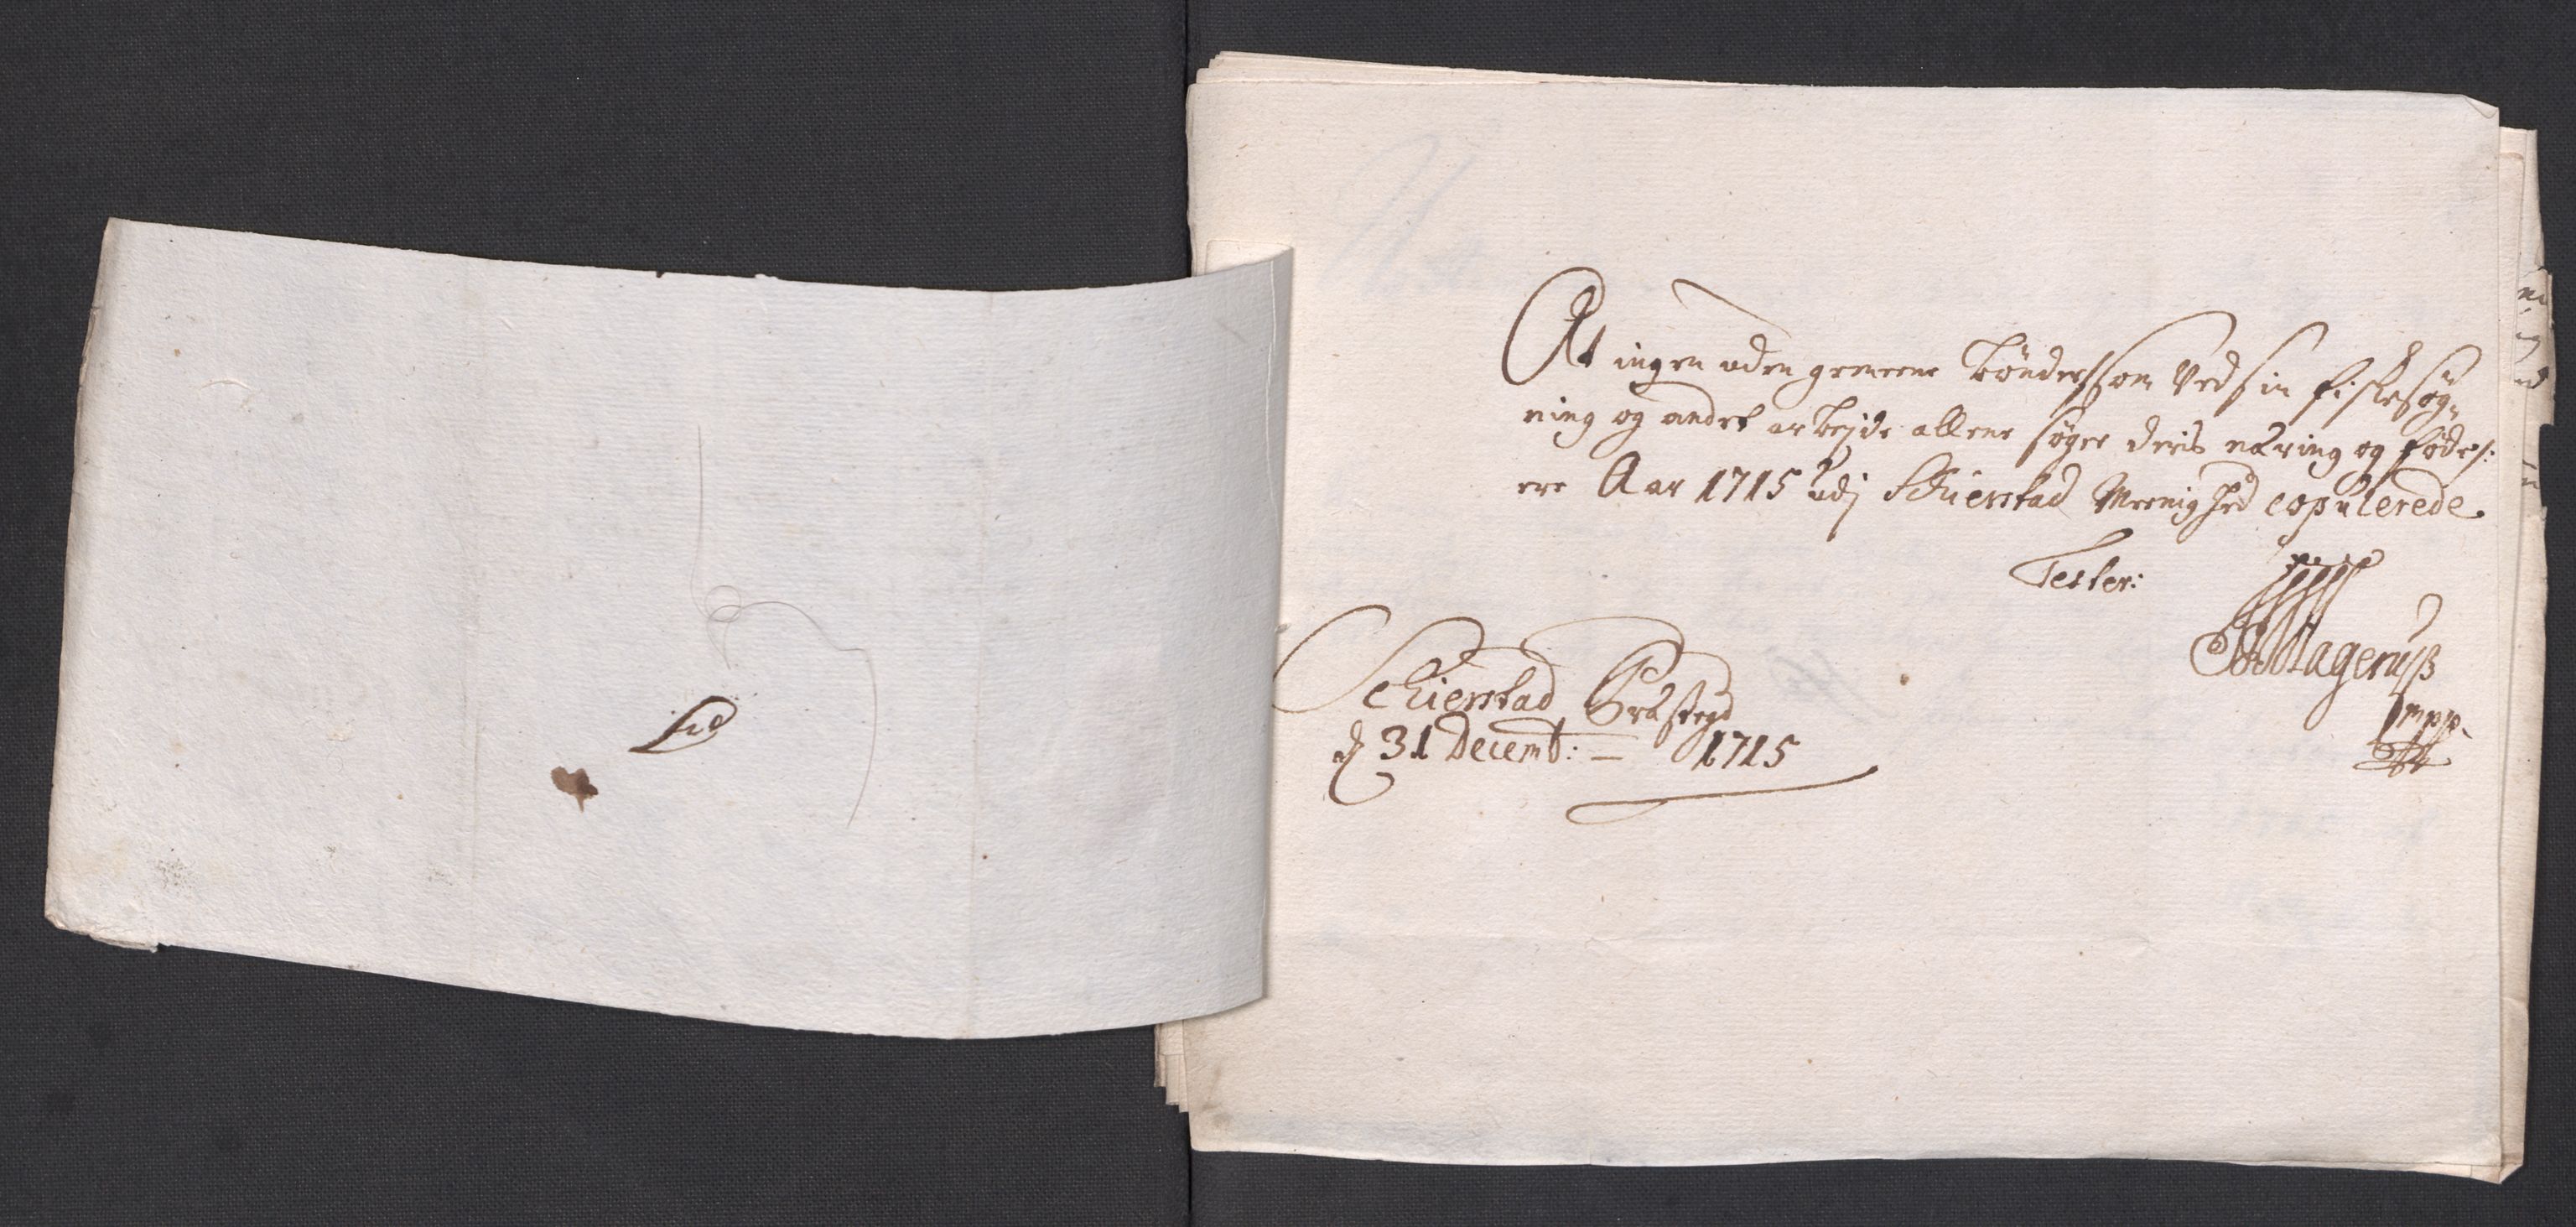 At ingen uden gemeene bønder som ved sin fiskesøg„
ning og andet arbejde allene søger deris næring og føde /:
ere Aar 1715 udj Schierstad Meenighed copulerede
Tester:
Schierstad Præstegd
d 31 Decemb: — 1715
Hagerup
mpp